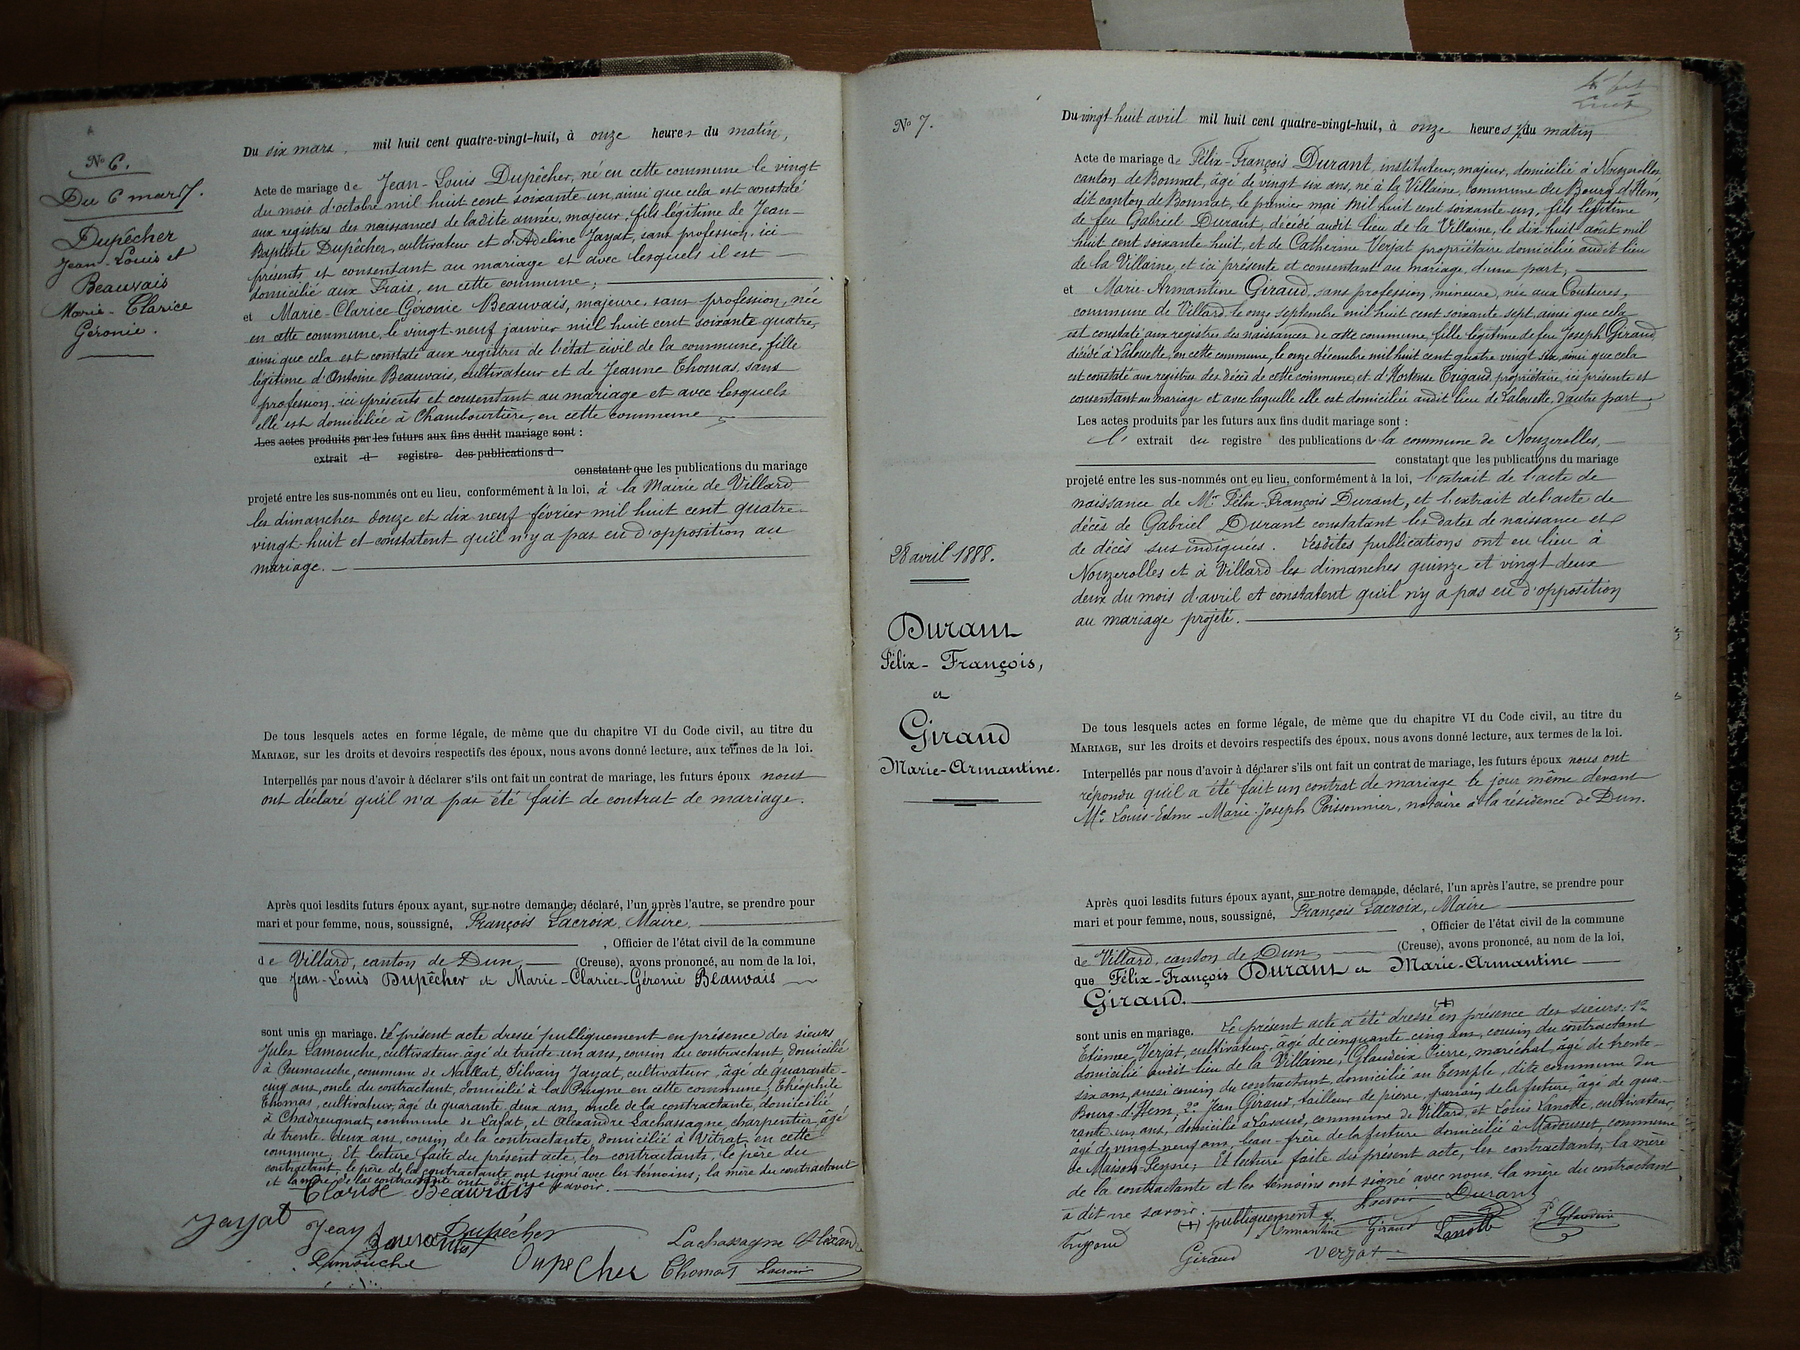 N° 6.
Du 6 mars.
Dupêcher
Jean-Louis et
Beauvais
Marie-Clarice
Géronie.
Du six mars, mil huit cent quatre-vingt-huit, à onze heures du matin,
Acte de mariage de Jean-Louis Dupêcher, né en cette commune le vingt
du mois d'octobre mil huit cent soixante un, ainsi que cela est constaté
aux registres des naissances de ladite année, majeur, fils légitime de Jean-
Baptiste Dupêcher, cultivateur et d'Adeline Jayat, sans profession, ici
présents et consentant au mariage et avec lesquels il est
domicilié aux Frais, en cette commune;
et Marie-Clarice-Géronie Beauvais, majeure, sans profession, née
en cette commune, le vingt-neuf janvier mil huit cent soixante quatre,
ainsi que cela est constaté aux registres de l'état civil de la commune, fille
légitime d'Antoine Beauvais, cultivateur et de Jeanne Thomas, sans
profession, ici présents et consentant au mariage et avec lesquels
elle est domiciliée à Chambourtière, en cette commune;
Les actes produits par les futurs aux fins dudit mariage sont :
extrait d registre des publications d
constatant que les publications du mariage
projeté entre les sus-nommés ont eu lieu, conformément à la loi, à la Mairie de Villard
les dimanches douze et dix neuf février mil huit cent quatre-
vingt-huit et constatent qu'il n'y a pas eu d'opposition au
mariage.
De tous lesquels actes en forme légale, de même que du chapitre VI du Code civil, au titre du
MARIAGE, sur les droits et devoirs respectifs des époux, nous avons donné lecture, aux termes de la loi.
Interpellés par nous d'avoir à déclarer s'ils ont fait un contrat de mariage, les futurs époux nous
ont déclaré qu'il n'a pas été fait de contrat de mariage.
Après quoi lesdits futurs époux ayant, sur notre demande, déclaré, l'un après l'autre, se prendre pour
mari et pour femme, nous, soussigné, François Lacroix, Maire
, Officier de l'état civil de la commune
de Villard, canton de Dun, (Creuse), avons prononcé, au nom de la loi,
que Jean-Louis Dupêcher et Marie-Clarice-Géronie Beauvais
sont unis en mariage. Le présent acte dressé publiquement en présence des sieurs
Jules Lamouche, cultivateur âgé de trente un ans, cousin du contractant, domicilié
à Poumouche, commune de Naillat, Silvain Jayat, cultivateur, âgé de quarante-
cinq ans, oncle du contractant, domicilié à la Preugne en cette commune, Théophile
Thomas, cultivateur, âgé de quarante deux ans, oncle de la contractante, domicilié
à Chadreugnat, commune de Lafat, et Alexandre Lachassagne, charpentier, âgé
de trente deux ans, cousin de la contractante, domicilié à Vitrat, en cette
commune, Et lecture faite du présent acte, les contractants, le père du
contractant, le père de la contractante ont signé avec les témoins; la mère du contractant
et la mère de la contractante ont dit ne savoir.
Clarise Beauvais
Jayat Jean Dupêcher Lachassagne Alexandre
Beauvais
Lamouche Dupecher Thomas Lacroix
N° 7.
28 avril 1888.
Durant
Félix-François,
et
Giraud
Marie-Armantine.
Du vingt huit avril mil huit cent quatre-vingt-huit, à onze heures du matin
Acte de mariage de Félix-François Durant, instituteur, majeur, domicilié à Nouzerolles,
canton de Bonnat, âgé de vingt six ans, né à la Villaine, commune du Bourg d'Hem,
dit canton de Bonnat, le premier mai mil huit cent soixante un, fils légitime
de feu Gabriel Durant, décédé audit lieu de la Villaine, le dix huit août mil
huit cent soixante huit, et de Catherine Verjat propriétaire domiciliée audit lieu
de la Villaine, et ici présente et consentant au mariage, d'une part,
et Marie-Armantine Giraud, sans profession, mineure, née aux Coutures,
commune de Villard, le onze septembre mil huit cent soixante sept, ainsi que cela
est constaté aux registres des naissances de cette commune, fille légitime de feu Joseph Giraud,
décédé à Lalouette, en cette commune, le onze décembre mil huit cent quatre vingt six, ainsi que cela
est constaté aux registres des décès de cette commune, et d'Hortense Trigaud, propriétaire, ici présente et
consentant au mariage et avec laquelle elle est domiciliée audit lieu de Lalouette, d'autre part
Les actes produits par les futurs aux fins dudit mariage sont :
l' extrait du registre des publications de la commune de Nouzerolles,
constatant que les publications du mariage
projeté entre les sus-nommés ont eu lieu, conformément à la loi, l'extrait de l'acte de
naissance de Mr Félix-François Durant, et l'extrait de l'acte de
décès de Gabriel Durant constatant les dates de naissance et
de décès sus indiquées. Lesdites publications ont eu lieu à
Nouzerolles et à Villard les dimanches quinze et vingt deux
deux du mois d'avril et constatent qu'il n'y a pas eu d'opposition
au mariage projeté.
De tous lesquels actes en forme légale, de même que du chapitre VI du Code civil, au titre du
MARIAGE, sur les droits et devoirs respectifs des époux, nous avons donné lecture, aux termes de la loi.
Interpellés par nous d'avoir à déclarer s'ils ont fait un contrat de mariage, les futurs époux nous ont
répondu qu'il a été fait un contrat de mariage le jour même devant
Me Louis-Edme-Marie-Joseph Poissonnier, notaire à la résidence de Dun.
Après quoi lesdits futurs époux ayant, sur notre demande, déclaré, l'un après l'autre, se prendre pour
mari et pour femme, nous, soussigné, François Lacroix, Maire
, Officier de l'état civil de la commune
de Villard, canton de Dun, (Creuse), avons prononcé, au nom de la loi,
que Félix-François Durant et Marie-Armantine
Giraud.
sont unis en mariage. Le présent acte a été dressé (+) en présence des sieurs: 1°
Etienne Verjat, cultivateur, âgé de cinquante cinq ans, cousin du contractant
domicilié audit lieu de la Villaine, Glaudeix Pierre, maréchal, âgé de trente-
six ans, aussi cousin du contractant, domicilié au Temple, dite commune du
Bourg-d'Hem, 2° Jean Giraud, tailleur de pierre, parrain de la future, âgé de qua-
rante un ans, domicilié à Lavaud, commune de Villard, et Louis Lanotte, cultivateur,
âgé de vingt-neuf ans, beau-frère de la future domicilié à Madousset, commune
de Maison-Feyne; Et lecture faite du présent acte, les contractants, la mère
de la contractante et les témoins ont signé avec nous, la mère du contractant
a dit ne savoir. Lacroix Durant
(+) publiquement Armantine Giraud Lanotte P Glaudeix
Giraud Verjat